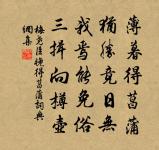 薄暮得菖蒲
猶勝竟日無
我焉能免俗
三揖向樽壺
梅堯臣晚得菖蒲詞典
網集